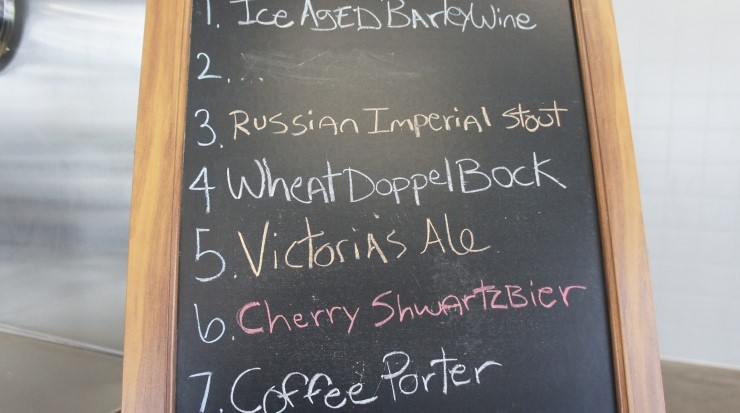 1. Ice AGED BarleyWine
2...
3. Russian Imperial Stout
4 Wheat Doppel Bock
5. Victoria's Ale
6. Cherry ShwartzBier
7. Coffee Porter